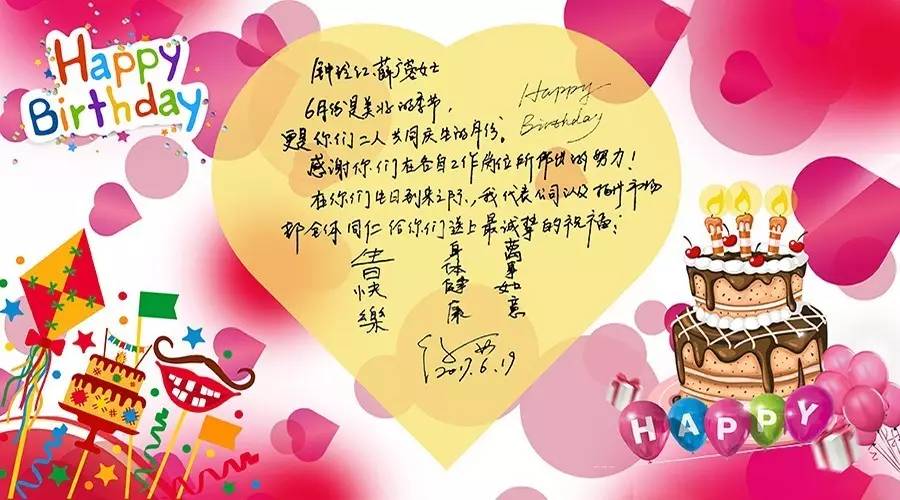 Happy
Birthday
钟玲红 薛广英女士
6月份是美好的季节，
更是你们二人共同庆生的月份。
感谢你们在各自工作岗位所作出的努力！
在你们生日到来之际，我代表公司以及 市场
部全体同仁给你们送上最诚挚的祝福：
Happy
Birthday
生日快樂
身体健康
萬事如意
2017.6.19
HAPPY